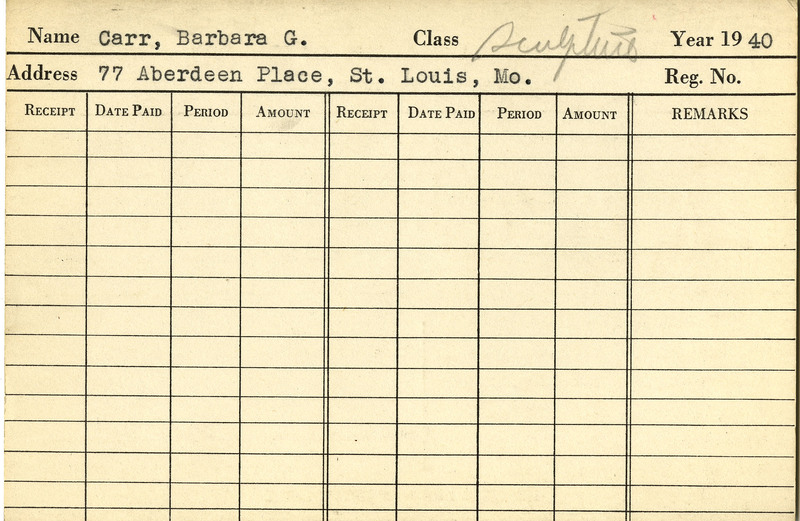 Name Carr, Barbara G. Class Sculpture Year 19 40
Address 77 Aberdeen Place, St. Louis, Mo. Reg. No.
RECEIPT DATE PAID PERIOD AMOUNT RECEIPT DATE PAID PERIOD AMOUNT REMARKS